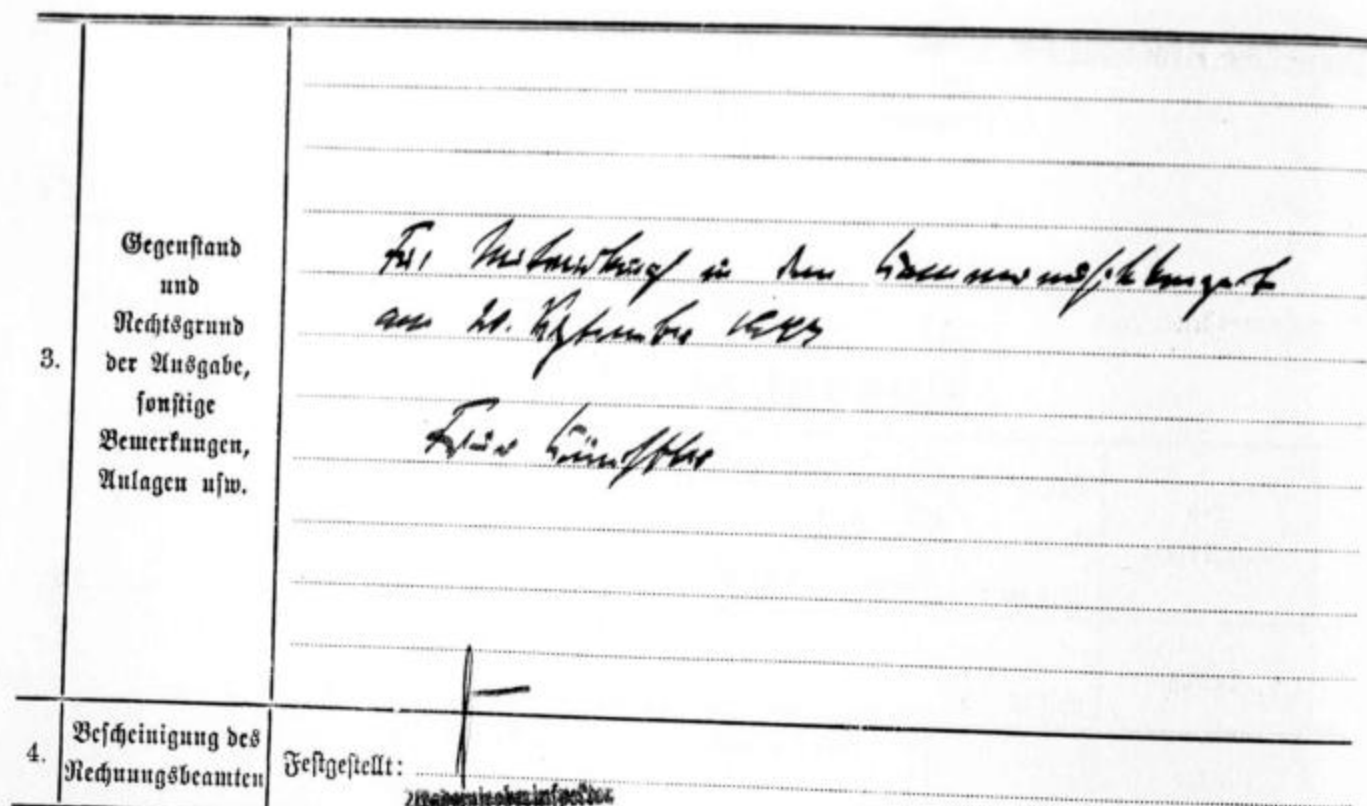 3.
Gegenstand
und
Rechtsgrund
der Ausgabe,
sonstige
Bemerkungen,
Anlagen usw.
Für Mitwirkung in dem Kammermusikkonzert
am 20. September
Künstler
4.
Bescheinigung des
Rechnungsbeamten
Festgestellt: